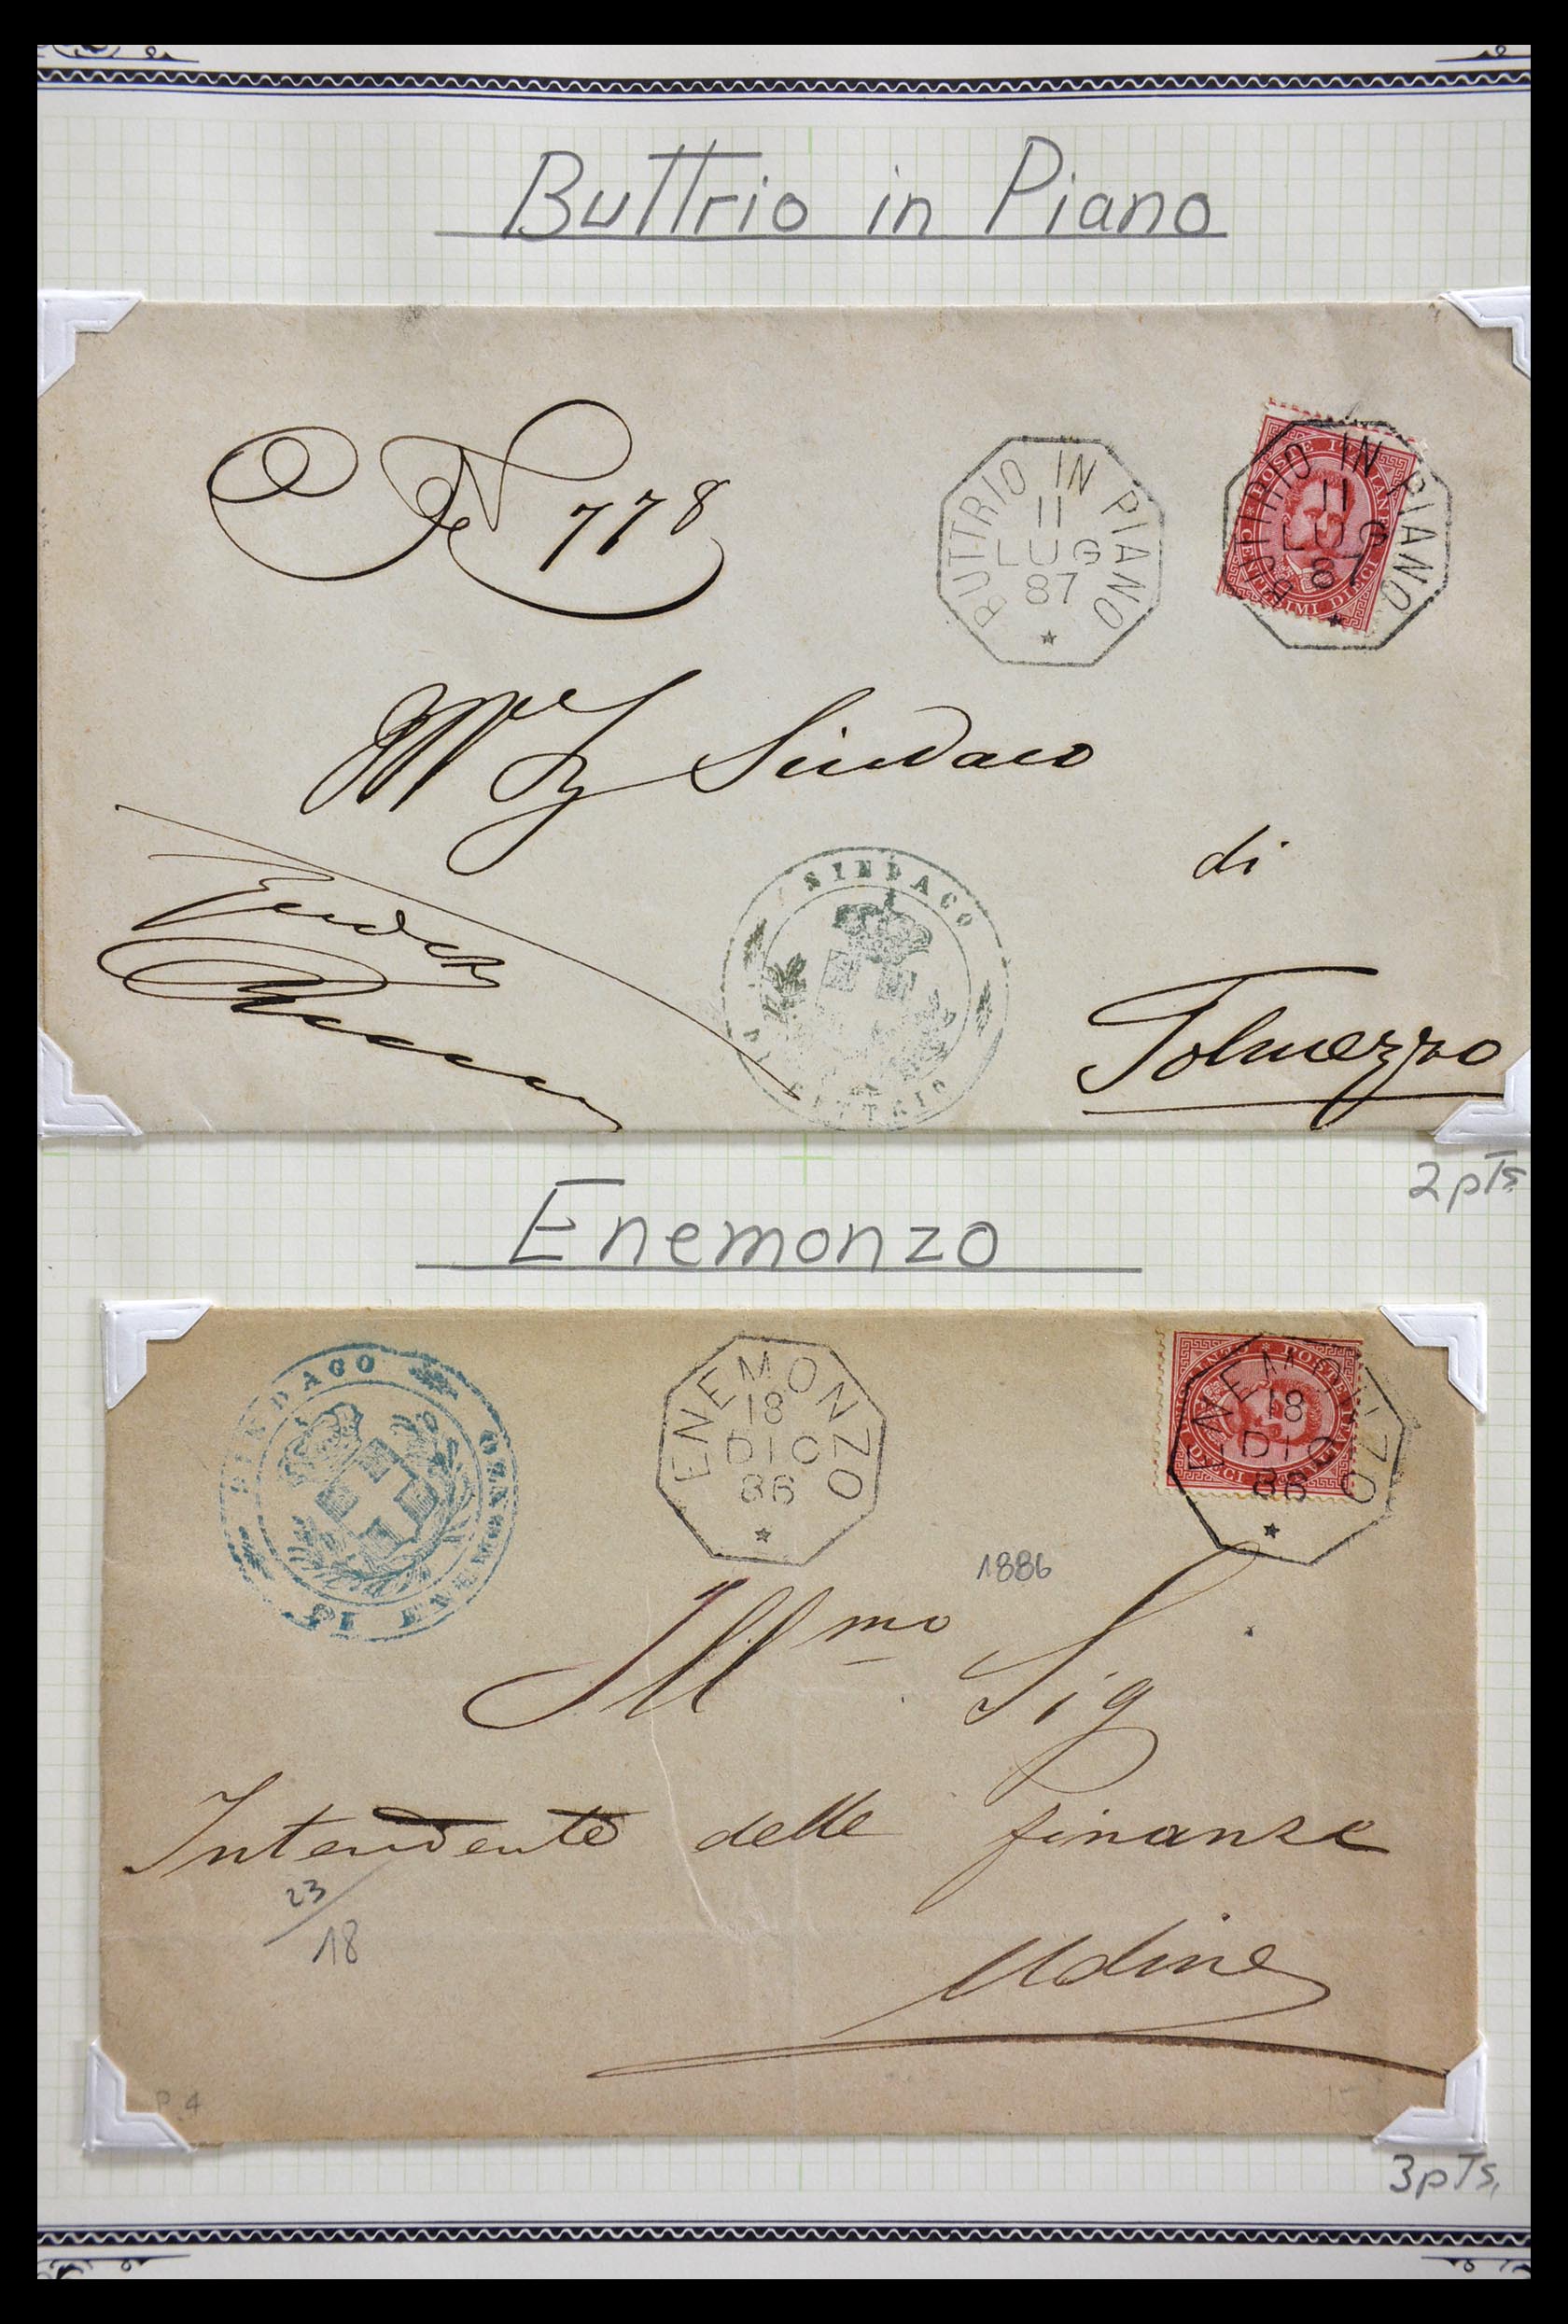 Buttrio in Piano
N 778
BUTTRIO IN PIANO
11
LUG
87
POSTE ITALIANE
CENTESIMI DIECI
BUTTRIO IN PIANO
11
LUG
87
Sindaco
di
SINDACO
BUTTRIO
Tolmezzo
2 pts
Enemonzo
SINDACO
DI ENEMONZO
ENEMONZO
18
DIC
86
POSTE ITALIANE
DIECI
ENEMONZO
18
DIC
86
1886
Illmo Sig
Intendente delle finanze
23/18
Udine
P. 4
3 pts.